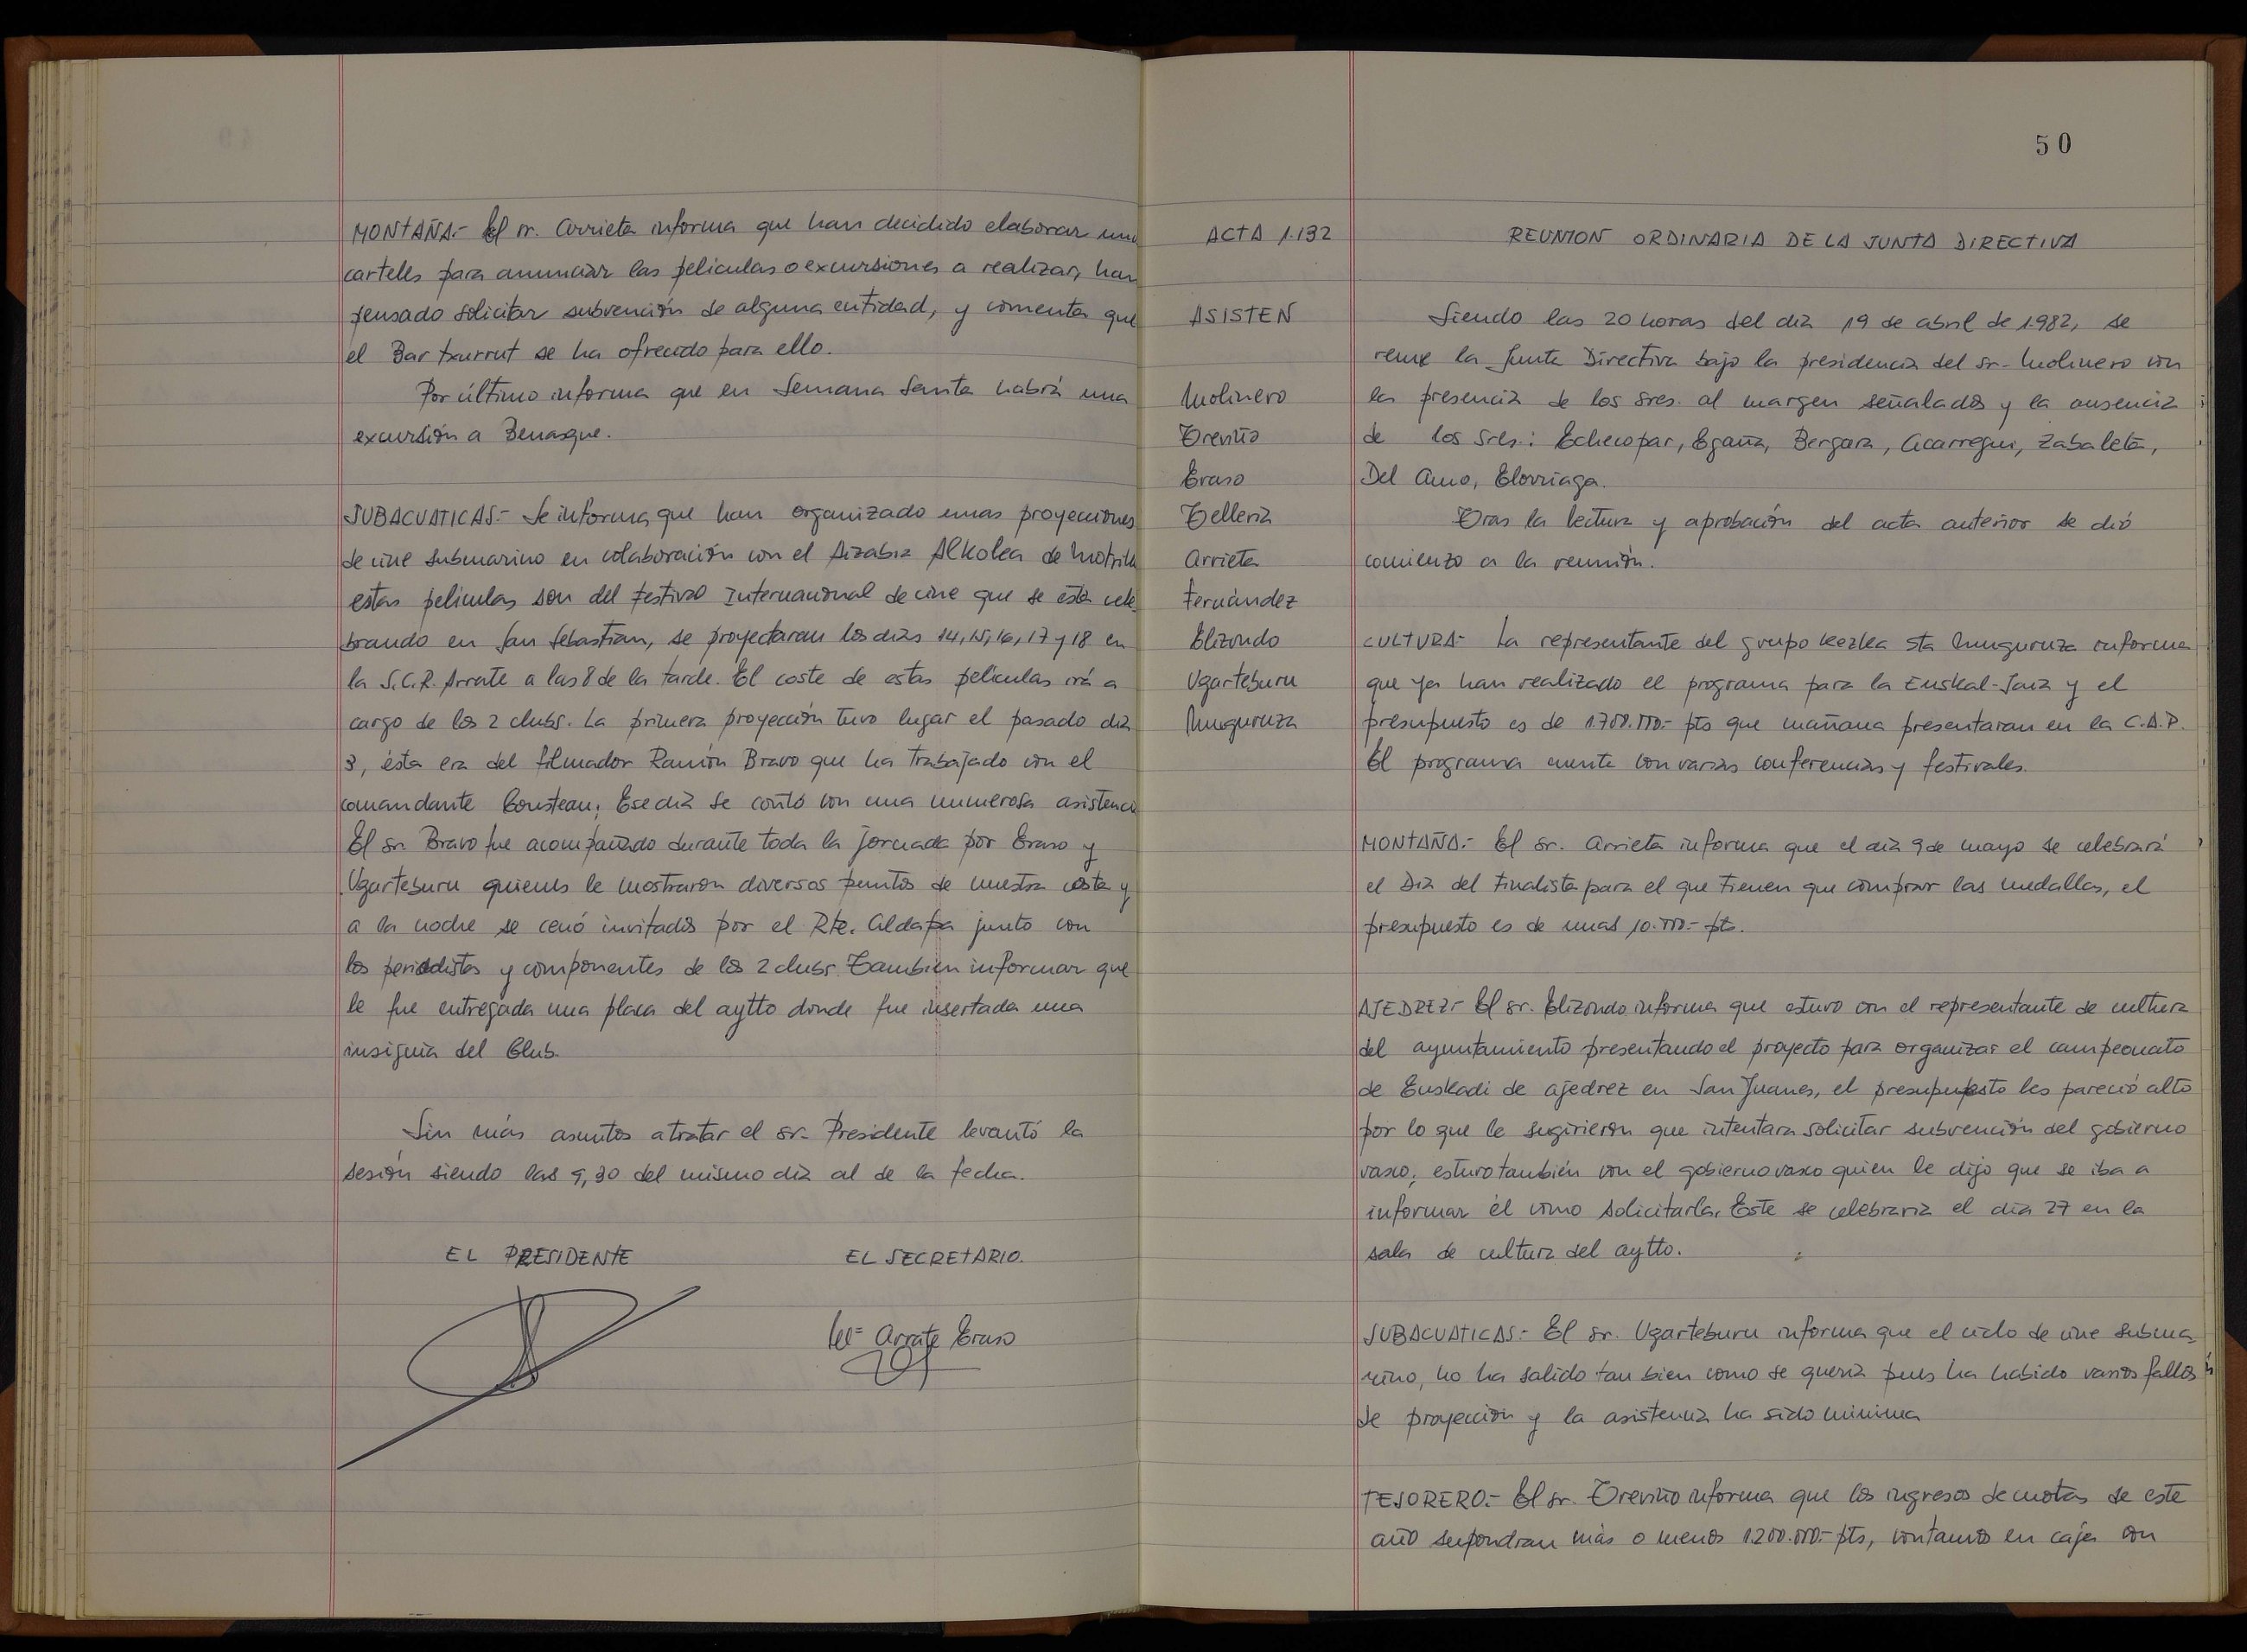 MONTAÑA.- El sr. Arrieta informa que han decidido elaborar unos
carteles para anunciar las peliculas o excursiones a realizar, han
pensado solicitar subvención de alguna entidad, y comenta que
el Bar txurrut se ha ofrecido para ello.
Por último informa que en Semana Santa habrá una
excursión a Benasque.
SUBACUATICAS.- Se informa que han organizado unas proyecciones
de cine submarino en colaboración con el Aizabia Alkolea de Motriku
estas peliculas son del Festival Internacional de cine que se está cele
brando en San Sebastian, se proyectaran los dias 14, 15, 16, 17 y 18 en
la S.C.R. Arrate a las 8 de la tarde. El coste de estas peliculas irá a
cargo de los 2 clubs. La primera proyección tuvo lugar el pasado dia
3, ésta era del filmador Ramón Bravo que ha trabajado con el
comandante Cousteau; Ese dia se contó con una numerosa asistencia
El sr. Bravo fue acompañado durante toda la jornada por Eraso y
Ugarteburu quienes le mostraron diversos puntos de nuestra costa y
a la noche se cenó invitados por el Rte. Aldapa junto con
los periodistas y componentes de los 2 clubs. Tambien informar que
le fue entregada una placa del aytto donde fue insertada una
insignia del Club.
Sin más asuntos a tratar el sr. Presidente levantó la
sesión siendo las 9,30 del mismo dia al de la fecha.
EL PRESIDENTE EL SECRETARIO.
Mª Arrate Eraso
50
ACTA 1.132 REUNION ORDINARIA DE LA JUNTA DIRECTIVA
ASISTEN
Molinero
Treviño
Eraso
Telleria
Arrieta
Fernández
Elizondo
Ugarteburu
Muguruza
Siendo las 20 horas del dia 19 de abril de 1.982, se
reune la Junta Directiva bajo la presidencia del sr. Molinero con
la presencia de los sres. al margen señalados y la ausencia
de los sres.: Echecopar, Egaña, Bergara, Acarregui, Zabaleta,
Del Amo, Elorriaga.
Tras la lectura y aprobación del acta anterior se dió
comienzo a la reunión.
CULTURA- La representante del grupo Kezka sta Muguruza informa
que ya han realizado el programa para la Euskal-Jaia y el
presupuesto es de 1.700.000.- pts que mañana presentaran en la C.A.P.
El programa cuenta con varias conferencias y festivales.
MONTAÑA.- El sr. Arrieta informa que el dia 9 de mayo se celebrará
el Dia del Finalista para el que tienen que comprar las medallas, el
presupuesto es de unas 10.000.- pts.
AJEDREZ.- El sr. Elizondo informa que estuvo con el representante de cultura
del ayuntamiento presentando el proyecto para organizar el campeonato
de Euskadi de ajedrez en San Juanes, el presupuesto les pareció alto
por lo que le sugirieron que intentara solicitar subvención del gobierno
vasco; estuvo también con el gobierno vasco quien le dijo que se iba a
informar él como solicitarla. Este se celebraria el dia 27 en la
sala de cultura del aytto.
SUBACUATICAS.- El sr. Ugarteburu informa que el ciclo de cine subma-
rino, no ha salido tan bien como se queria pues ha habido varios fallos
de proyección y la asistencia ha sido minima
TESORERO.- El sr. Treviño informa que los ingresos de cuotas de este
año supondran más o menos 1.200.000.- pts, contamos en caja con